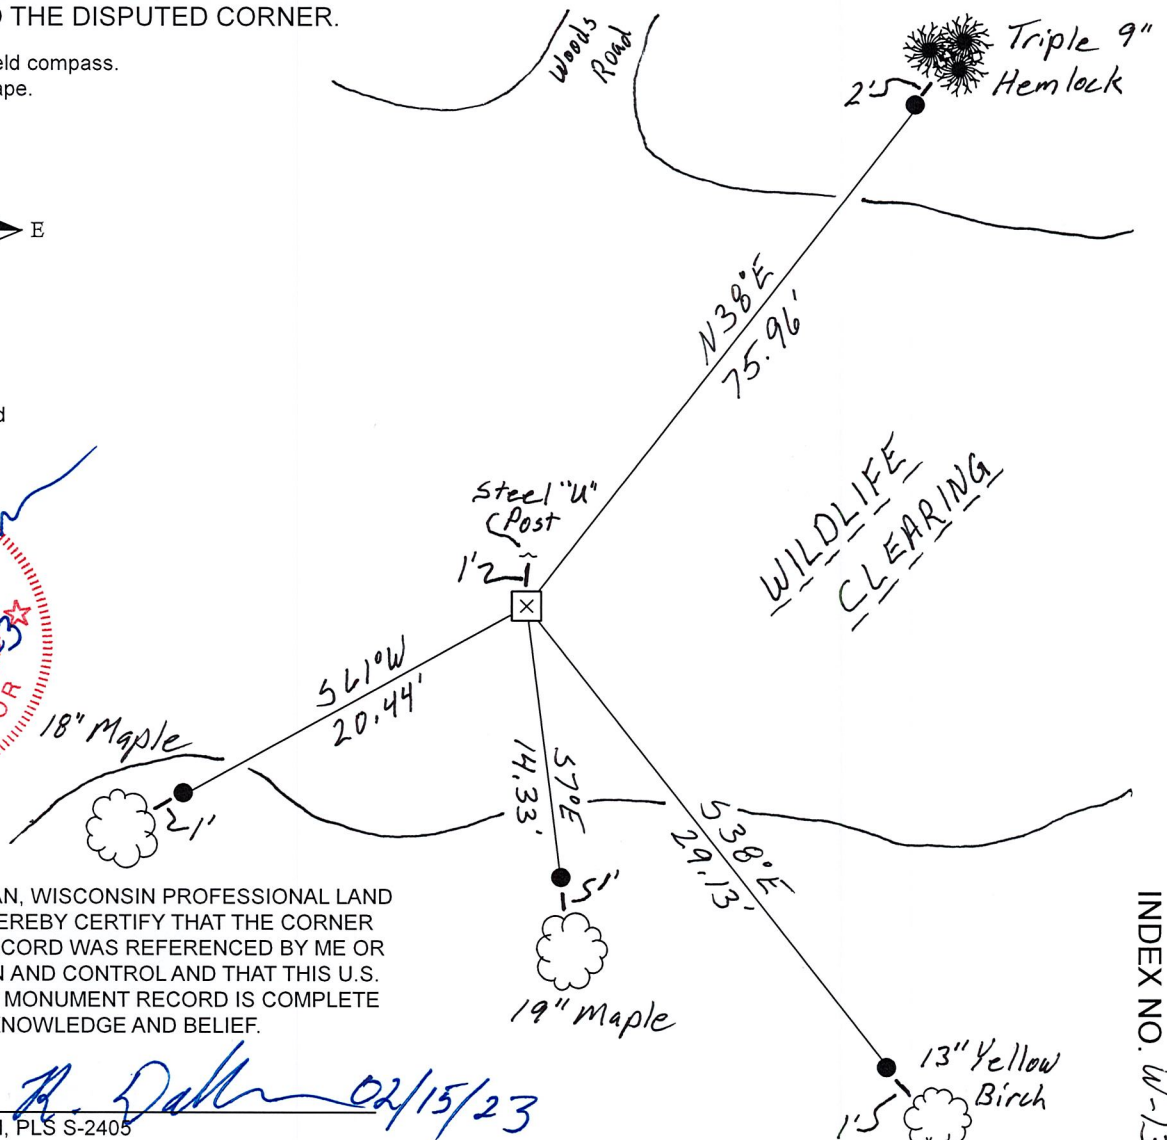 THE DISPUTED CORNER.
eld compass.
ape.
Woods
Road
Triple 9"
Hemlock
2'
E
N38°E
75.96'
WILDLIFE
CLEARING
Steel "U"
Post
1'
S61°W
20.44'
18" Maple
1'
S7°E
14.33'
S38°E
29.13'
1'
19" Maple
13" Yellow
Birch
1'
OR
AN, WISCONSIN PROFESSIONAL LAND
EREBY CERTIFY THAT THE CORNER
CORD WAS REFERENCED BY ME OR
N AND CONTROL AND THAT THIS U.S.
MONUMENT RECORD IS COMPLETE
NOWLEDGE AND BELIEF.
R. 02/15/23
, PLS S-2405
INDEX NO. W-13